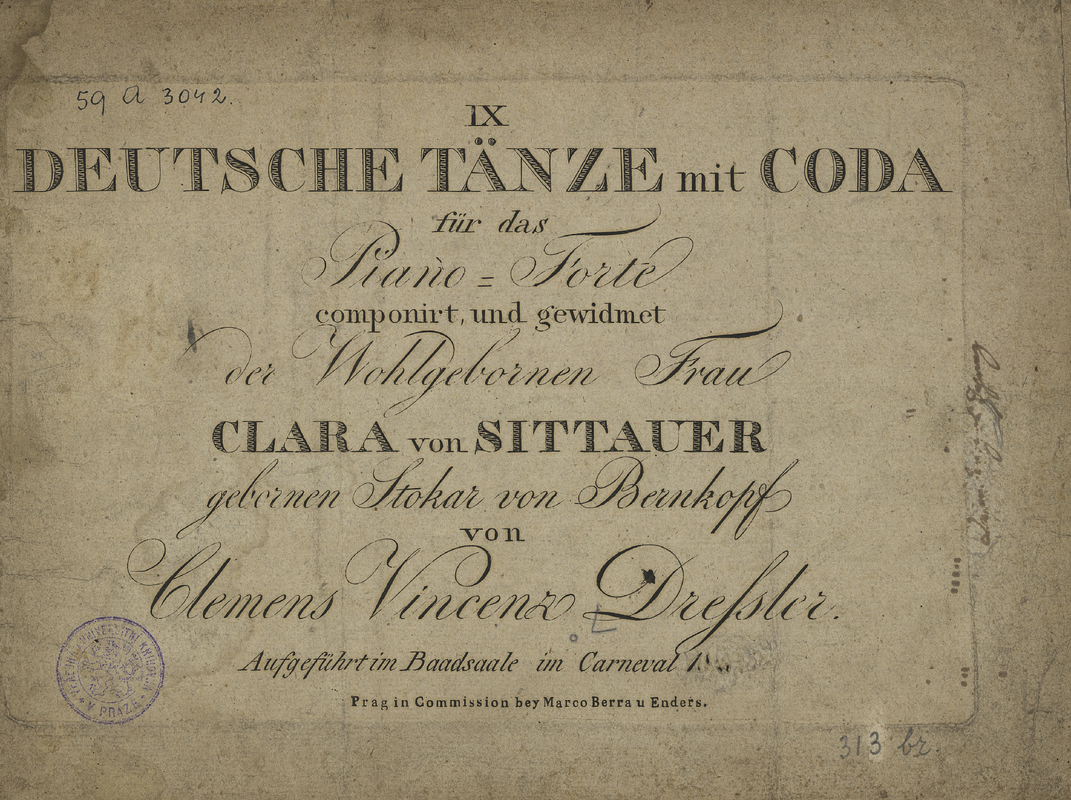 59 A 3042.
IX
DEUTSCHE TÄNZE mit CODA
für das
Piano = Forte
componirt, und gewidmet
der Wohlgebornen Frau
CLARA von SITTAUER
gebornen Stokar von Bernkopf
von
Clemens Vincenz Dreſsler.
Aufgeführt im Baadsaale im Carneval
Prag in Commission bey Marco Berra u Enders.
V PRAZE
313 bz.